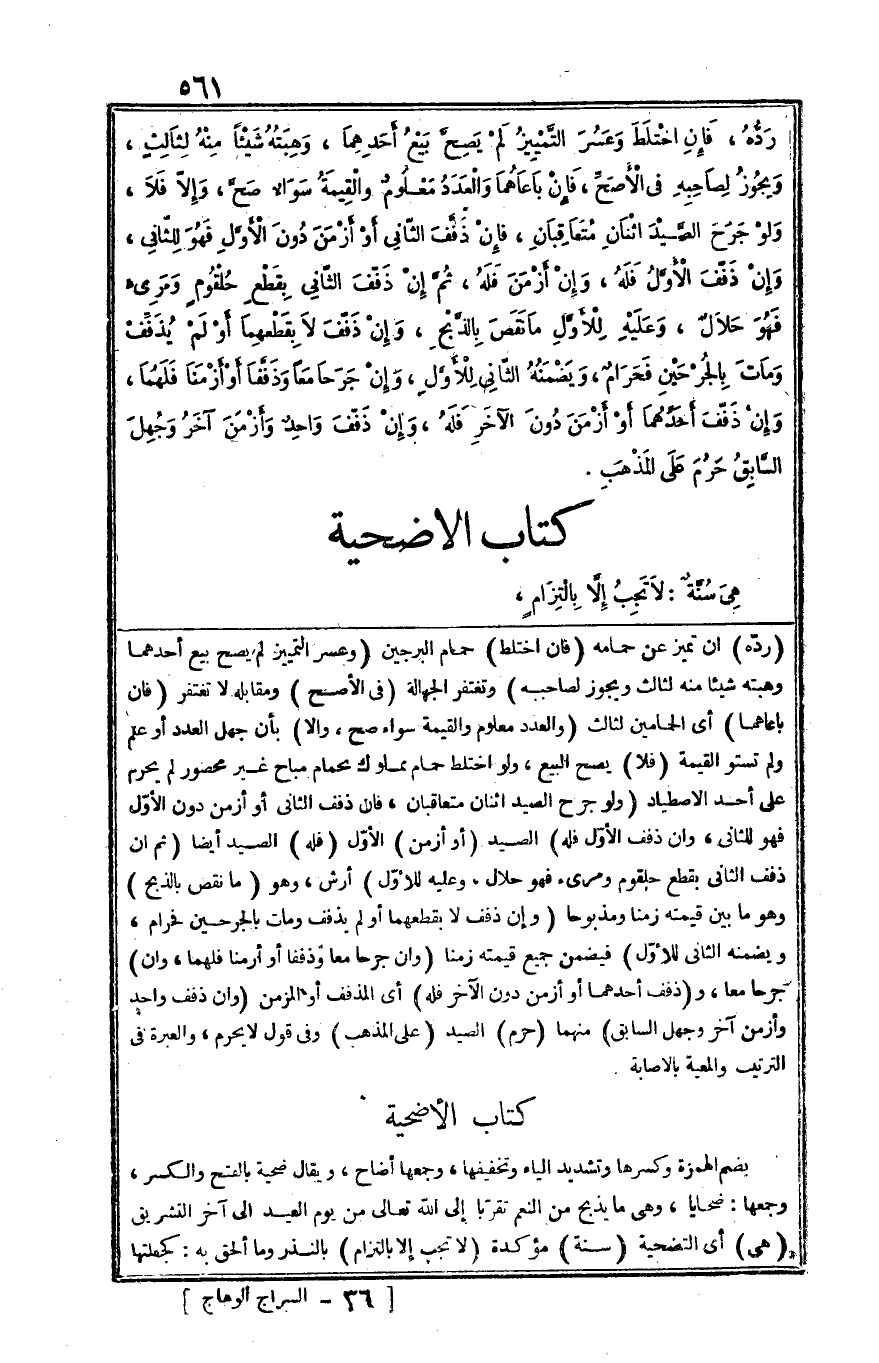 ٥٦١
رَدُّهُ ، فَإِنِ اخْتَلَطَ وَعَسُرَ التَّمْيِيزُ لَمْ يَصِحَّ بَيْعُ أَحَدِهِمَا ، وَهِبَتُهُ شَيْئاً مِنْهُ لِثَالِثٍ ،
وَيَجُوزُ لِصَاحِبِهِ فِى الْأَصَحِّ ، فَإِنْ بَاعَاهُمَا وَالْعَدَدُ مَعْلُومٌ وَالْقِيمَةُ سَوَاءٌ صَحَّ ، وَإِلاَّ فَلاَ ،
وَلَوْ جَرَحَ الصَّيْدَ اثْنَانِ مُتَعَاقِبَانِ ، فَإِنْ ذَفَّفَ الثَّانِي أَوْ أَزْمَنَ دُونَ الْأَوَّلِ فَهُوَ لِلثَّانِي ،
وَإِنْ ذَفَّفَ الْأَوَّلُ فَلَهُ ، وَإِنْ أَزْمَنَ فَلَهُ ، ثُمَّ إِنْ ذَفَّفَ الثَّانِي بِقَطْعِ حُلْقُومٍ وَمَرِىءٍ
فَهُوَ حَلاَلٌ ، وَعَلَيْهِ لِلْأَوَّلِ مَا نَقَصَ بِالذَّبْحِ ، وَإِنْ ذَفَّفَ لاَ بِقَطْعِهِمَا أَوْ لَمْ يُذَفِّفْ
وَمَاتَ بِالْجُرْحَيْنِ فَحَرَامٌ، وَيَضْمَنُهُ الثَّانِي لِلْأَوَّلِ ، وَإِنْ جَرَحَا مَعاً وَذَفَّفَا أَوْ أَزْمَنَا فَلَهُمَا ،
وَإِنْ ذَفَّفَ أَحَدُهُمَا أَوْ أَزْمَنَ دُونَ الآخَرِ فَلَهُ ، وَإِنْ ذَفَّفَ وَاحِدٌ وَأَزْمَنَ آخَرُ وَجُهِلَ
السَّابِقُ حَرُمَ عَلَى الْمَذْهَبِ .
كتاب الاضحية
هِيَ سُنَّةٌ : لاَ تَجِبُ إِلَّا بِالْتِزَامٍ ،
(ردّه) ان تميز عن حمامه (فان اختلط) حمام البرجين (وعسر التمييز لم يصح بيع أحدهما
وهبته شيئا منه لثالث ويجوز لصاحبه) وتغتفر الجهالة (فى الأصح) ومقابله لا تغتفر (فان
باعاهما) أى الحمامين لثالث (والعدد معلوم والقيمة سواء صح ، والا) بأن جهل العدد أو علم
ولم تستو القيمة (فلا) يصح البيع ، ولو اختلط حمام مملوك بحمام مباح غير محصور لم يحرم
على أحد الاصطياد (ولو جرح الصيد اثنان متعاقبان ، فان ذفف الثانى أو أزمن دون الأوّل
فهو للثانى ، وان ذفف الأوّل فله) الصيد (أو أزمن) الأوّل (فله) الصيد أيضا (ثم ان
ذفف الثانى بقطع حلقوم ومرىء فهو حلال . وعليه للأوّل) أرش ، وهو (ما نقص بالذبح)
وهو ما بين قيمته زمنا ومذبوحا (وإن ذفف لا بقطعهما أو لم يذفف ومات بالجرحين فحرام ،
ويضمنه الثانى للأوّل) فيضمن جميع قيمته زمنا (وان جرحا معا وذففا أو أزمنا فلهما ، وان)
جرحا معا ، و(ذفف أحدهما أو أزمن دون الآخر فله) أى المذفف أو المزمن (وان ذفف واحد
وأزمن آخر وجهل السابق) منهما (حرم) الصيد (على المذهب) وفى قول لا يحرم ، والعبرة فى
الترتيب والمعية بالاصابة .
كتاب الأضحية
بضم الهمزة وكسرها وتشديد الياء وتخفيفها ، وجمعها أضاح ، ويقال ضحية بالفتح والكسر ،
وجمعها : ضحايا ، وهى ما يذبح من النعم تقربا إلى الله تعالى من يوم العيد الى آخر التشريق
(هى) أى التضحية (سنة) مؤكدة (لا تجب إلا بالتزام) بالنذر وما ألحق به : كجعلتها
[ ٣٦ - السراج الوهاج ]